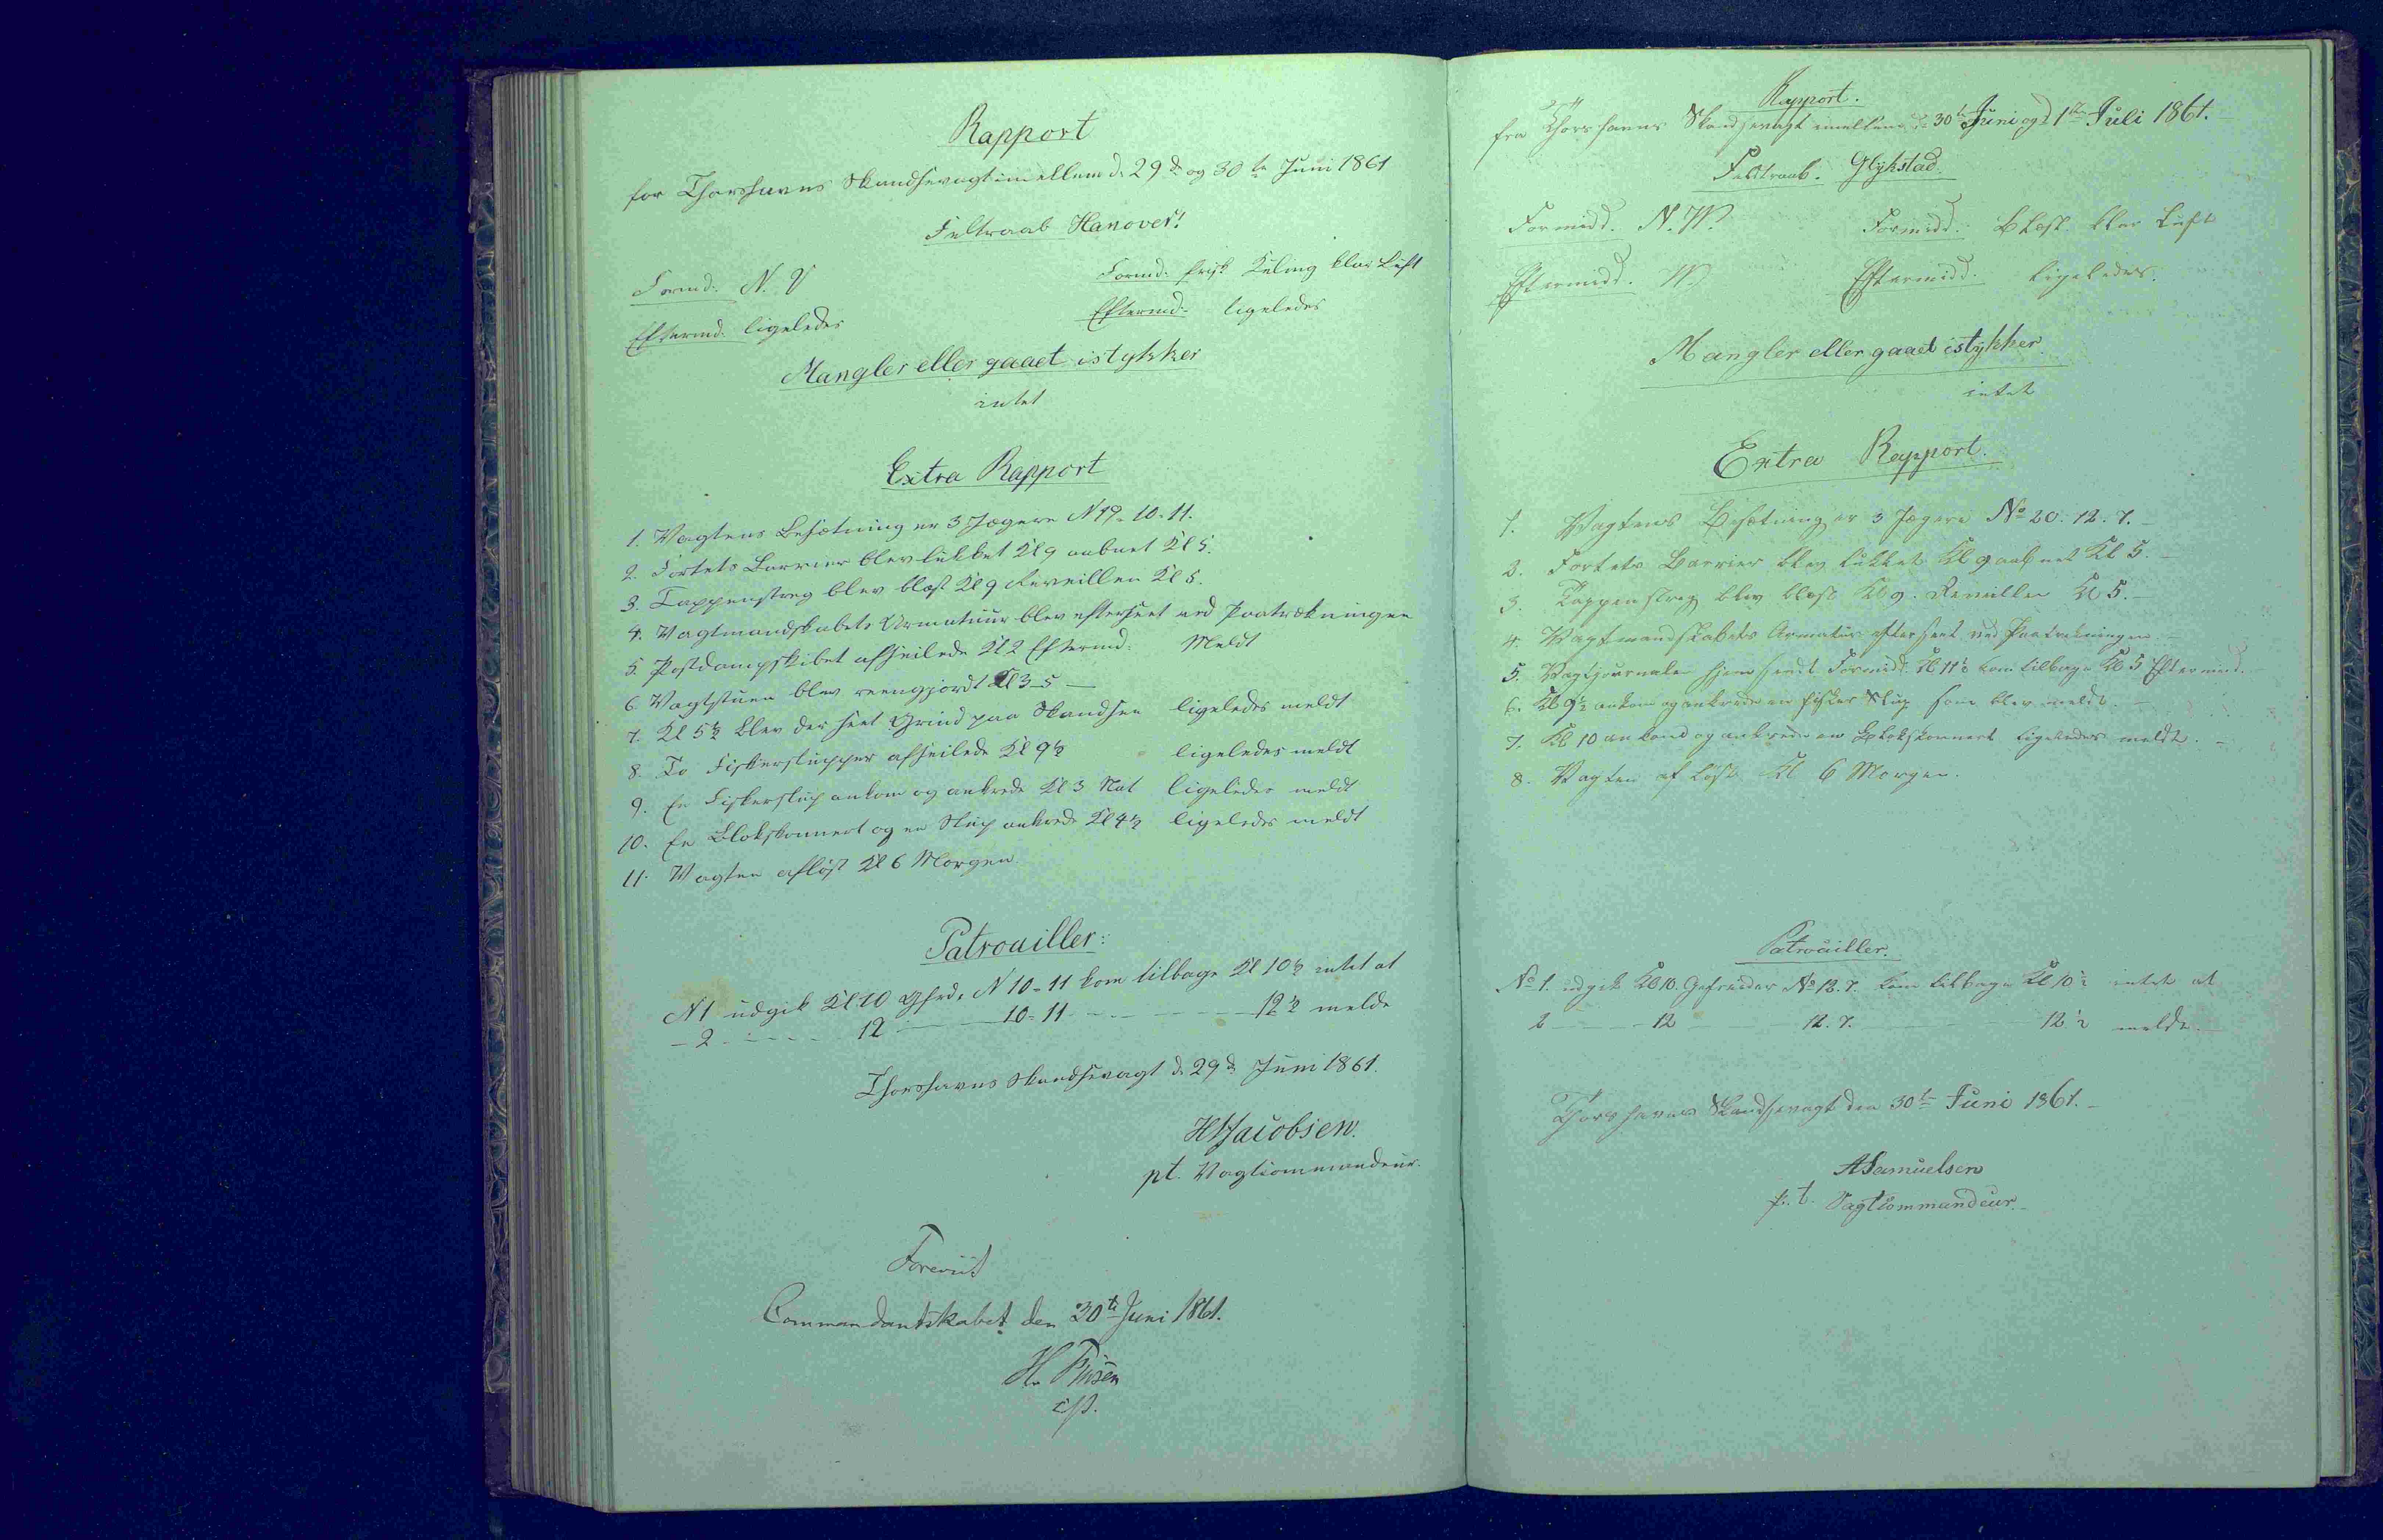 Rapport
for Thorshavns Skandsevagt imellem d. 29de og 30te Juni 1861
Feltraab Hanover!
Formd: N. V Formd: frisk Kuling klar Luft
Eftermd: ligeledes Eftermd: ligeledes
Mangler eller gaaet istykker
intet
Extra Rapport
1. Vagtens Besætning er 3 Jægere N 19-10-11.
2. Fortets Barrier blev lukket Kl 9 aabnet Kl 5.
3. Tappenstreg blev blæst Kl 9 Reveillen Kl 5.
4. Vagtmandskabets Armatuur blev efterseet ved Paatrækningen
5. Postdampskibet afseilede Kl 2 Eftermd: Meldt
6. Vagtstuen blev reengjordt Kl 3-5 —
7. Kl 5½ blev der seet Grind paa Skandsen ligeledes meldt
8. To Fiskerslupper afseilede Kl 9½ ligeledes meldt
9. En Fiskerslup ankom og ankrede Kl 3 Nat ligeledes meldt
10. En Blokskonnert og en Slup ankrede Kl 4½ ligeledes meldt
11. Vagten afløst Kl 6 Morgen.
Patrouiller:
N 1 udgik Kl. 10 Gfrd. N 10-11 kom tilbage Kl 10½ intet at
- 2 - - - - 12 - 10-11 - - - - 12½ melde
Thorshavns Skandsevagt d. 29de Juni 1861.
HJacobsen.
pt. Vagtcommandeur.
Foreviist
Commandantskabet den 30te Juni 1861.
H. Finsen
cst.
Rapport.
fra Thorshavns Skandsevagt imellem d. 30te Juni og d 1ste Juli 1861.
Feldtraab. Glykstad.
Formidd. N. W. Formidd: Blæst klar Luft
Eftermidd. W. Eftermidd: ligeledes.
Mangler eller gaaet istykker
intet
Extra Rapport.
1. Vagtens Besætning er 3 Jægere No 20. 12. 7.
2. Fortets Barrier blev lukket Kl 9 aabnet Kl 5.
3. Tappenstreg blev blæst Kl 9. Reveillen Kl 5.
4. Vagtmandskabets Armatur efterseet ved Paatrækningen.
5. Vagtjournalen hjemsendt Formidd: Kl 11½ kom tilbage Kl 5 Eftermidd.
6. Kl 9½ ankom og ankrede en Fisker Slup som blev meldt.
7. Kl 10 ankom og ankrede en Blokskonnert ligeledes meldt.
8. Vagten afløst Kl 6 Morgen.
Patrouiller.
No 1. udgik Kl 10. Gefreider No 12. 7. kom tilbage Kl 10½ intet at
2 - - 12 - - 12. 7. - - 12½ melde.
Thorshavns Skandsevagt den 30te Juni 1861.
ASamuelsen
p. t. Vagtcommandeur.